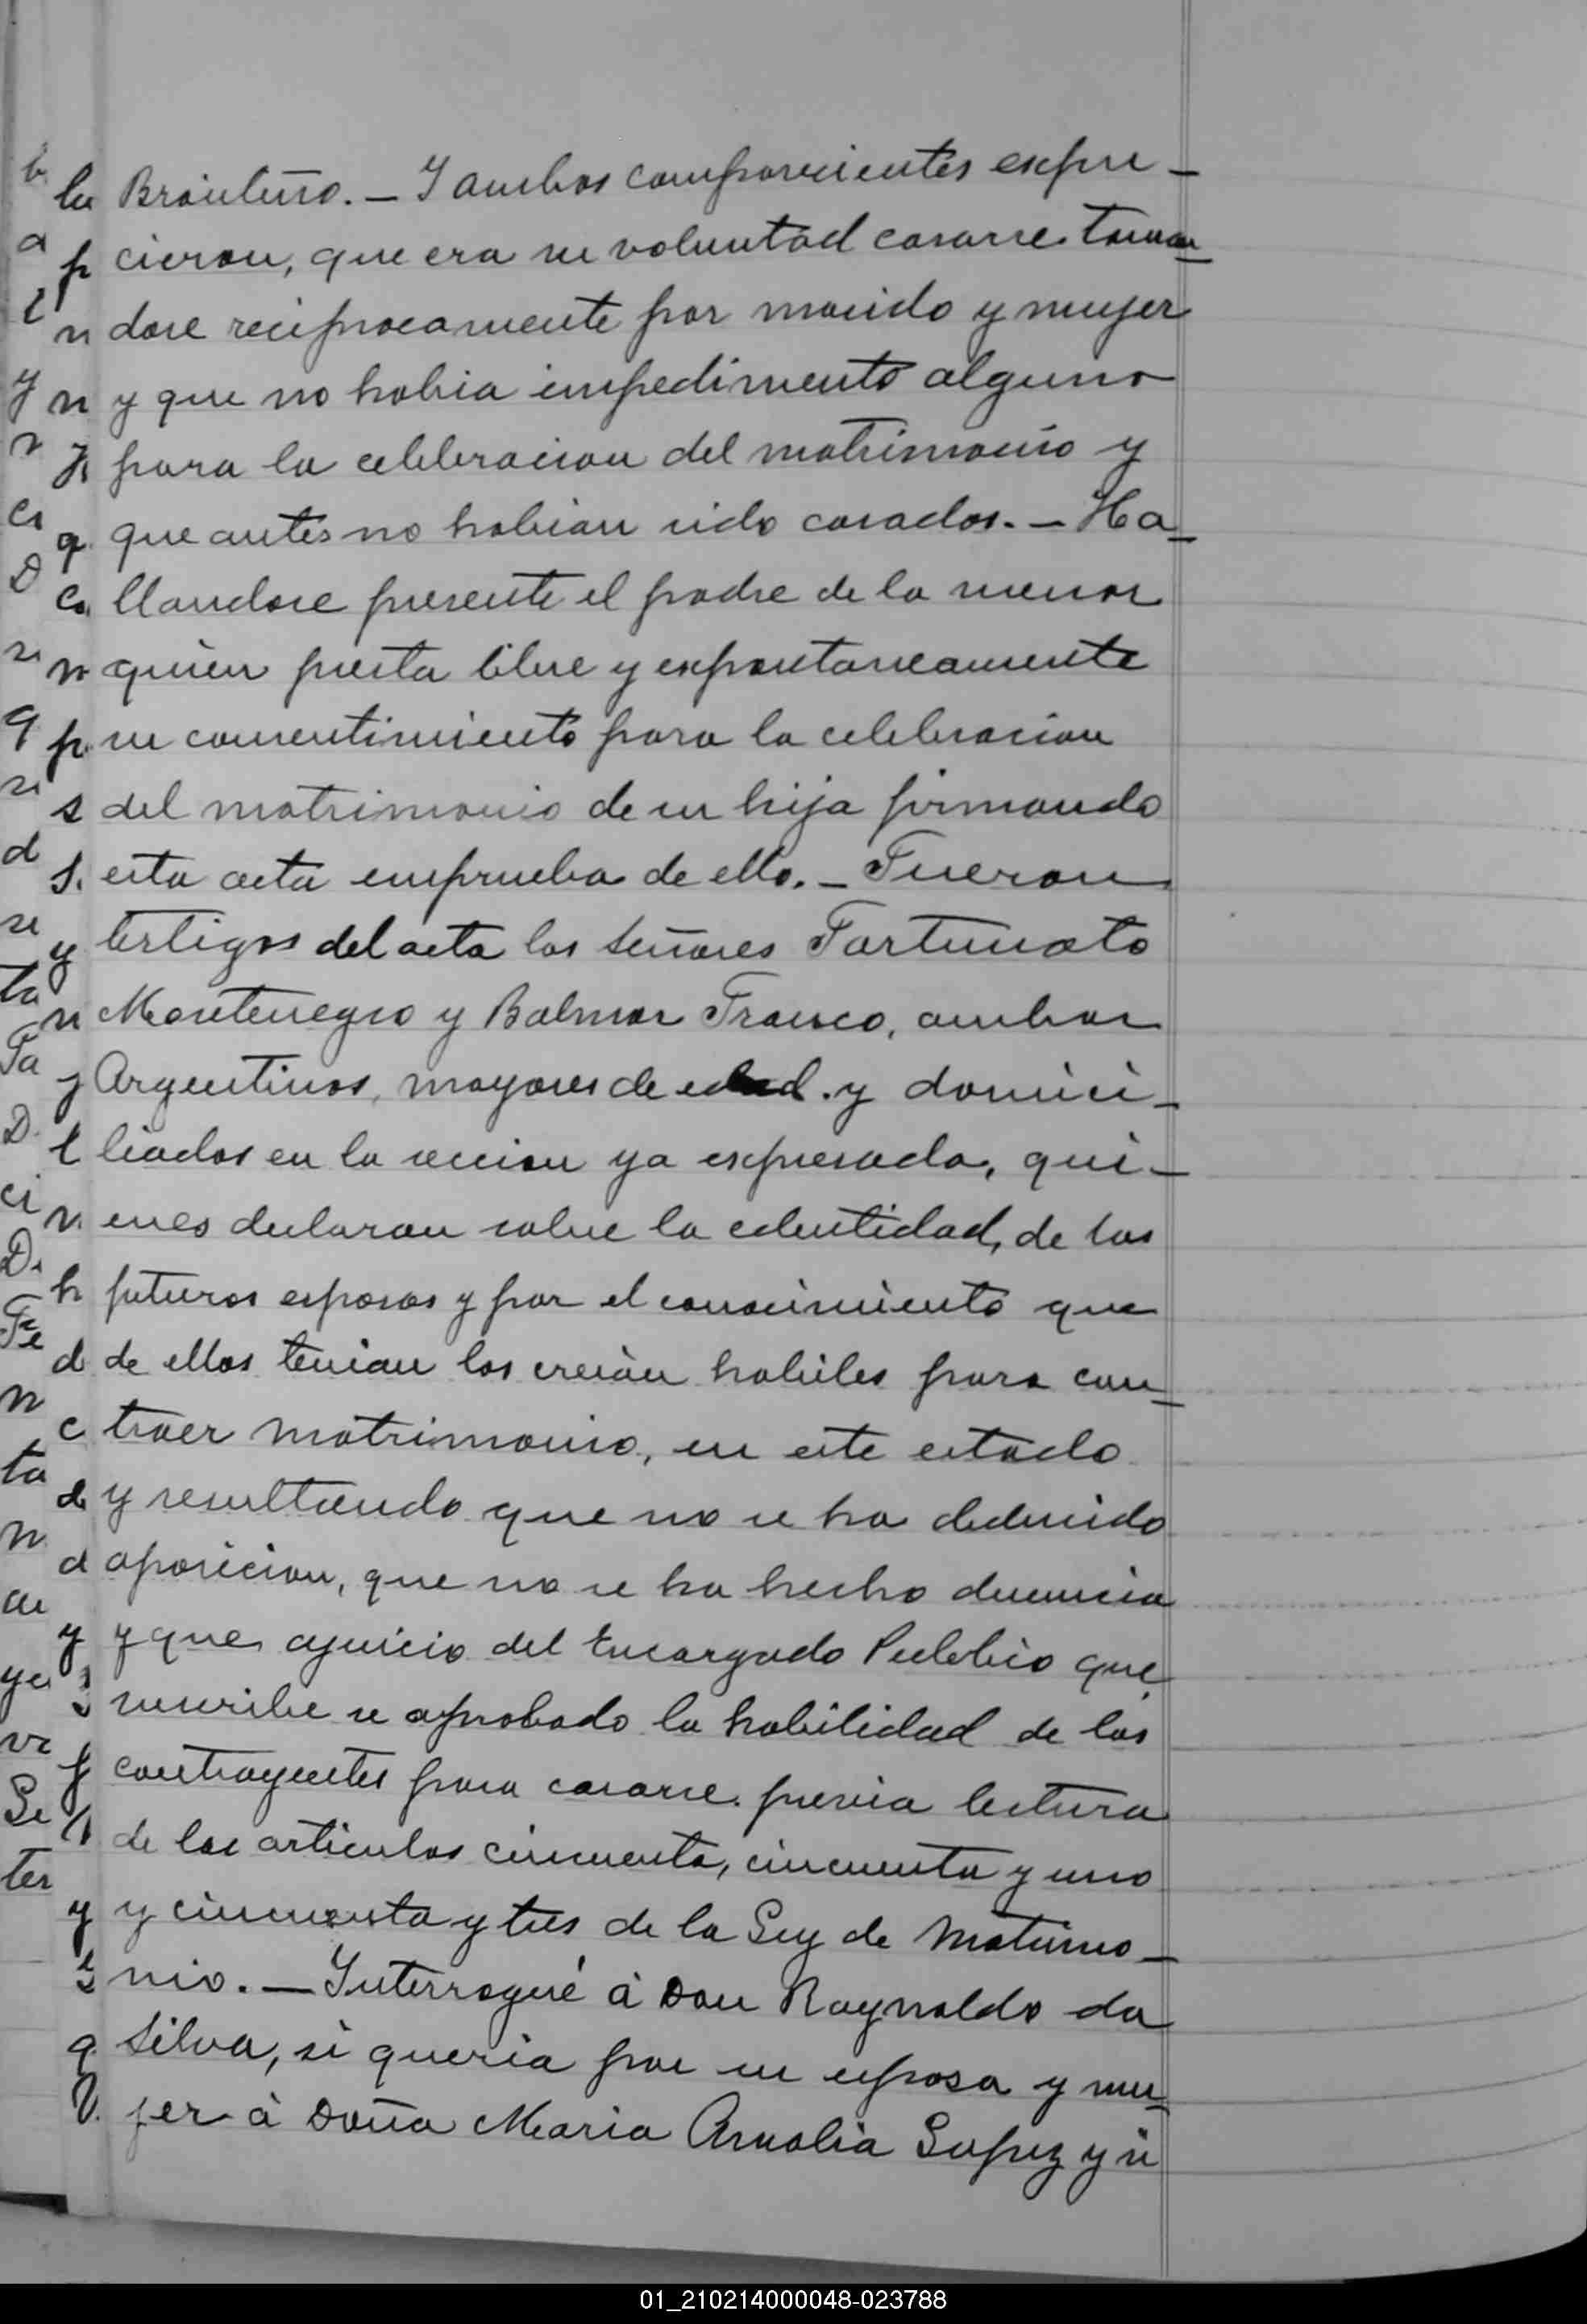 Brasileño. — Y ambos comparecientes expre-
cieron, que era su voluntad casarse toman-
dose reciprocamente por marido y mujer
y que no habia impedimento alguno
para la celebracion del matrimonio y
que antes no habian sido casados. — Ha-
llandose presente el padre de la menor
quien presta libre y expontaneamente
su consentimiento para la celebracion
del matrimonio de su hija firmando
esta acta enprueba de ello. — Fueron
testigos del acta los señores Fortunato
Montenegro y Balmor Franco, ambos
Argentinos, mayores de edad. y domici-
liados en la seccion ya expresada, qui-
enes declaran sobre la edentidad, de los
futuros esposos y por el conocimiento que
de ellos tenian los creian habiles para con-
traer matrimonio, en este estado
y resultando que no se ha deducido
oposicion, que no se ha hecho denuncia
y que ajuicio del Encargado Publico que
suscribe se aprobado la habilidad de los
contrayentes para casarse. previa lectura
de los articulos cincuenta, cincuenta y uno
y cincuenta y tres de la Ley de Matrimo-
nio. — Interrogué á Don Raynoldo da
Silva, si queria por su esposa y mu-
jer á Doña Maria Amalia Lopez y si
01_210214000048-023788